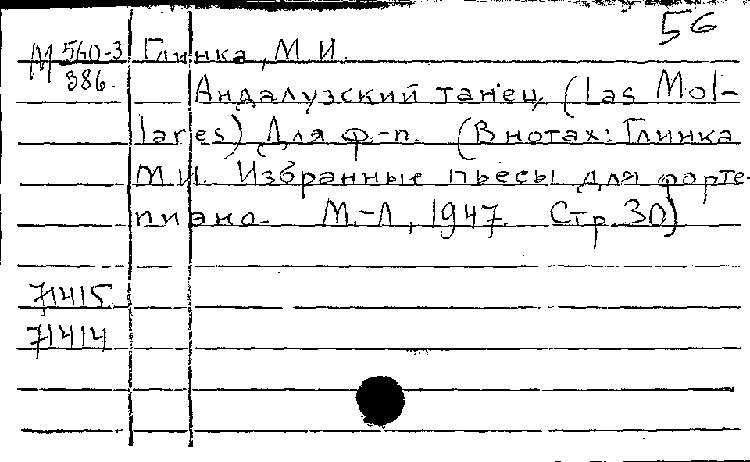 56
М 560-3 Глинка, М.И.
386.
Андалузский танец (Las Mol-
lares) Для ф.-п. (В нотах: Глинка
М.И. Избранные пьесы для форте-
пиано. М.-Л, 1947 Стр. 30)
71415
71414